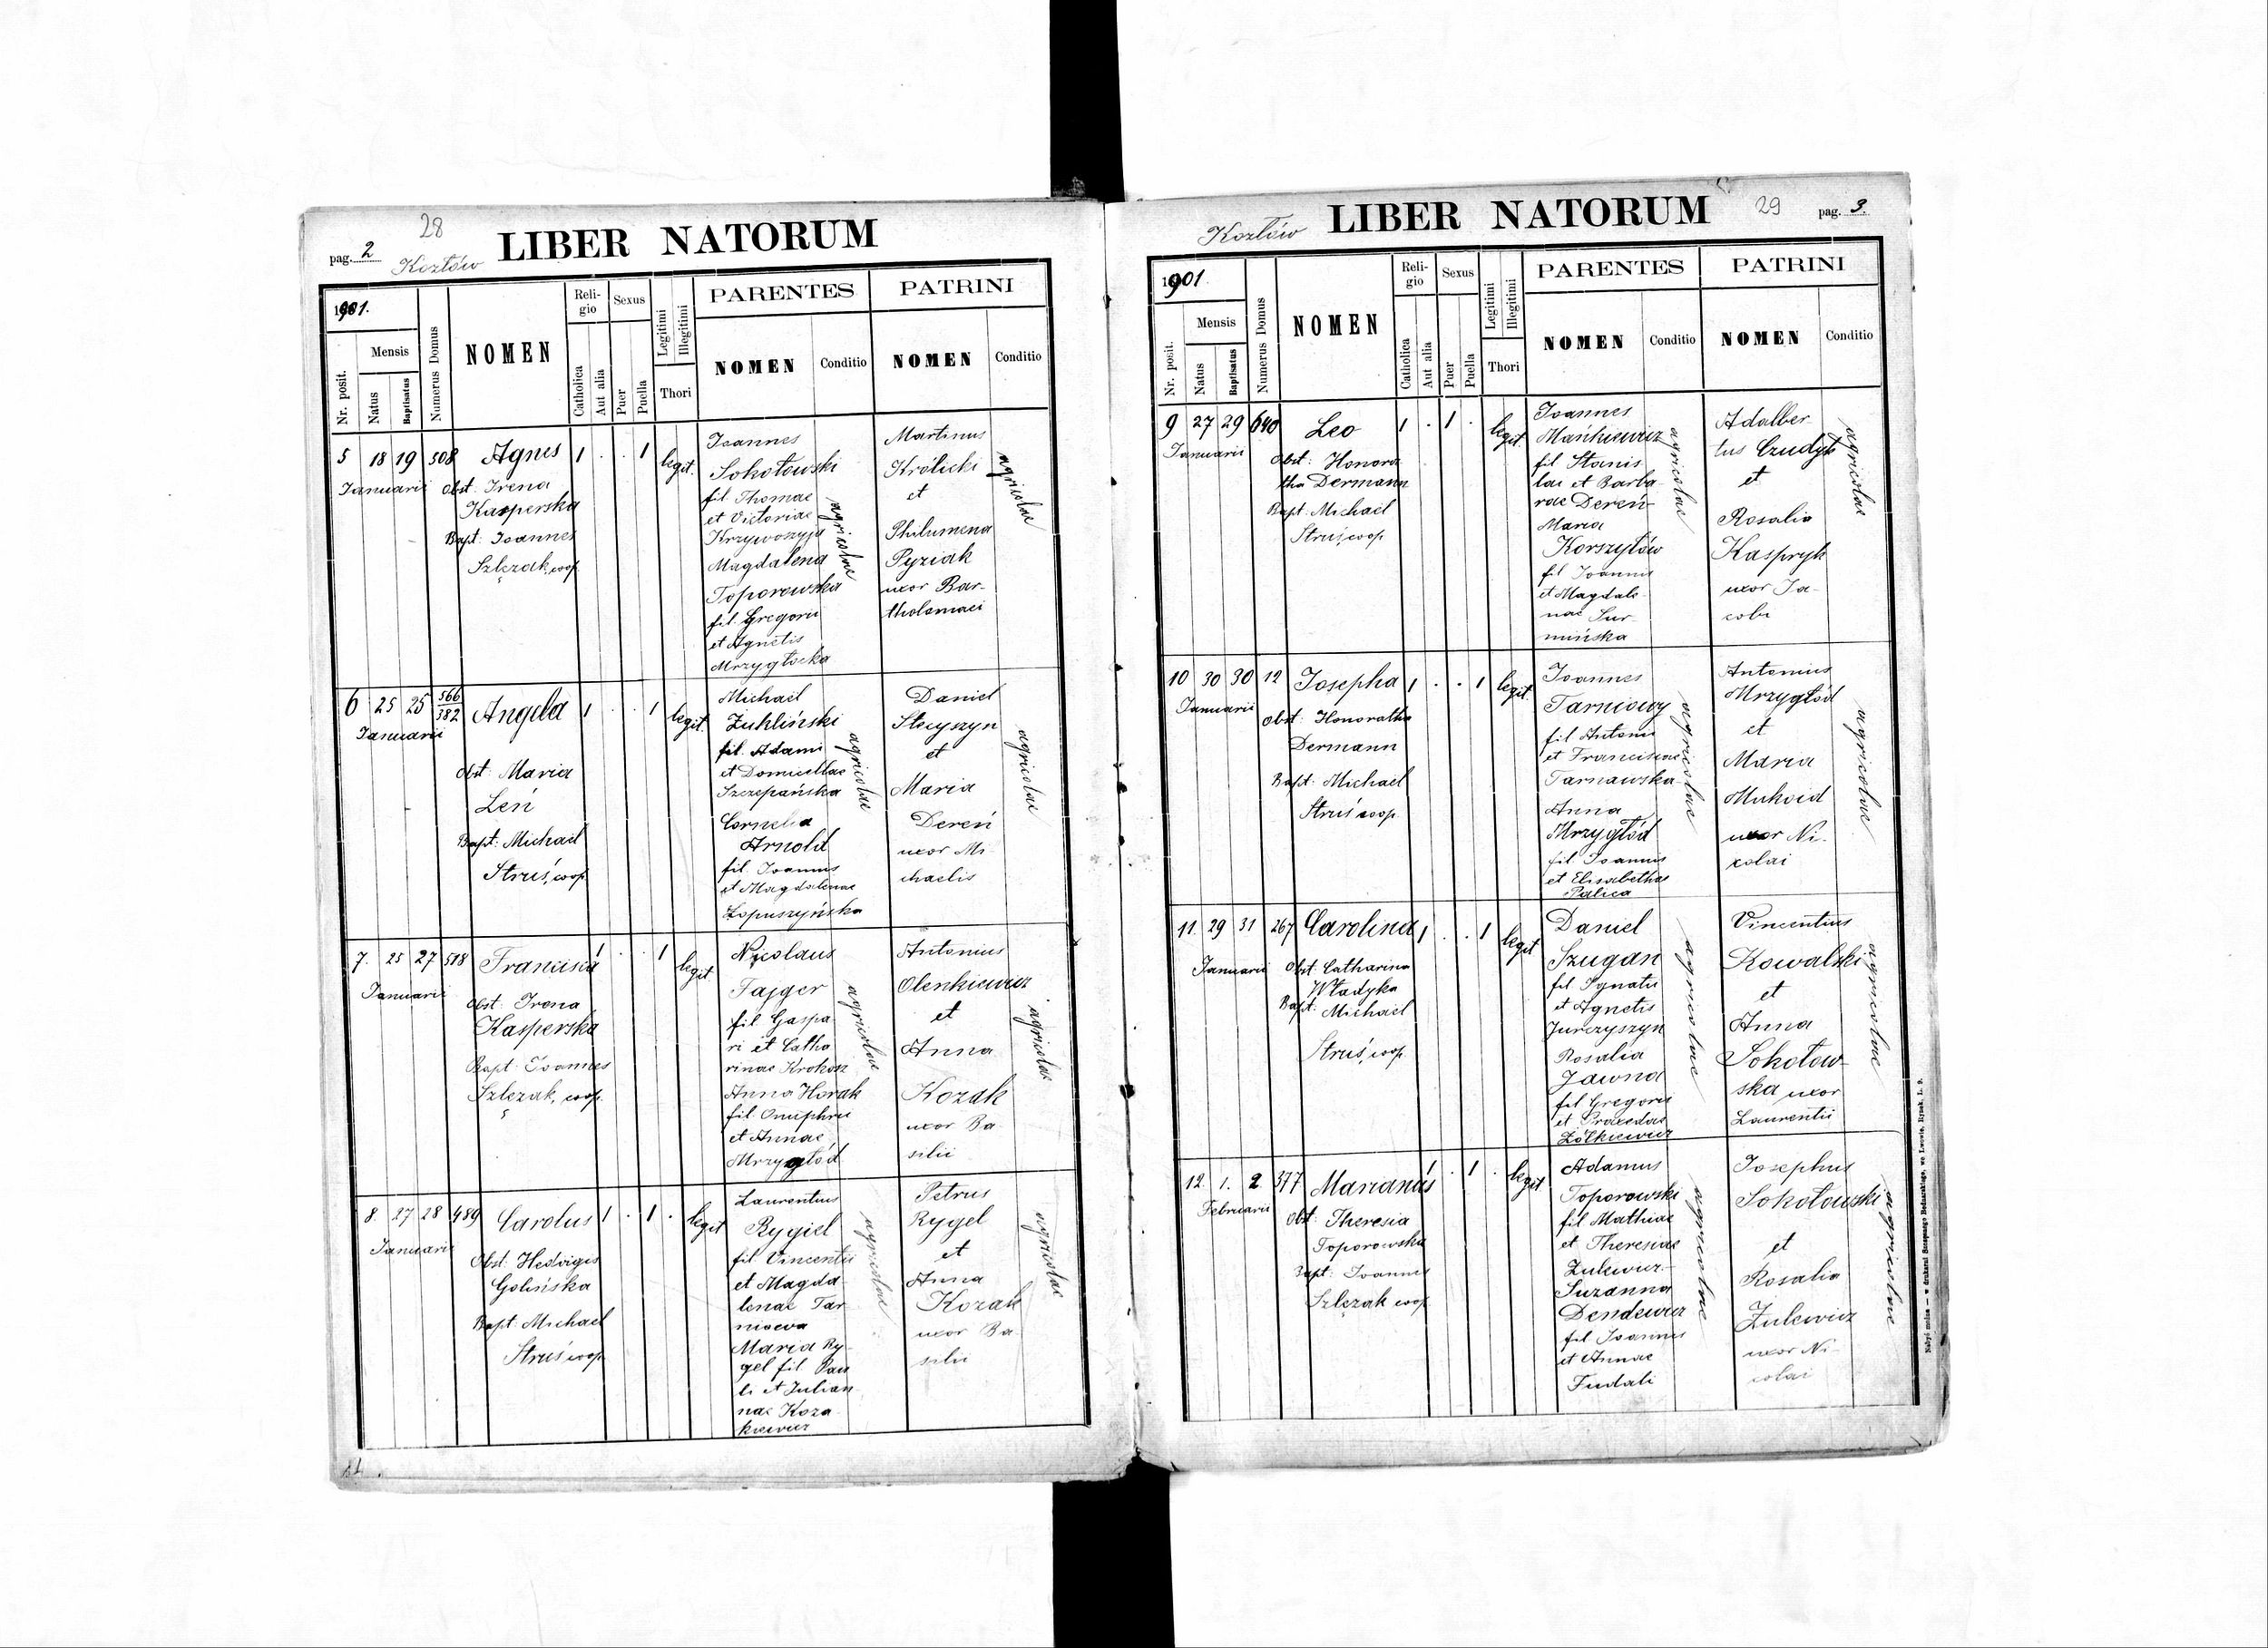 28
pag. 2
Kozłów
LIBER NATORUM
1901.
Nr. posit.
Mensis
Natus
Baptisatus
Numerus Domus
NOMEN
Reli-
gio
Catholica
Aut alia
Sexus
Puer
Puella
Legitimi
Illegitimi
Thori
PARENTES
NOMEN
Conditio
PATRINI
NOMEN
Conditio
5 18 19 508 Agnes 1 . . 1 legit.
Januarii
Obst. Irena
Kasperska
Bapt: Joannes
Szlęzak, coop.
Joannes
Sokołowski
fil. Thomae
et Victoriae
Krzywoszyja
Magdalena
Toporowska
fil. Gregorii
et Agnetis
Mrzygłocka
agricolae
Martinus
Królicki
et
Philumena
Pyziak
uxor Bar-
tholomaei
agricolae
6 25 25 566/382 Angela 1 . . 1 legit.
Januarii
Obst: Maria
Leń
Bapt: Michael
Struś, coop.
Michael
Żukliński
fil. Adami
et Domicellae
Szczepańska
Cornelia
Arnold
fil. Joannis
et Magdalenae
Łopuszyńska
agricolae
Daniel
Stecyszyn
et
Maria
Dereń
uxor Mi-
chaelis
agricolae
7. 25 27 518 Francisca 1 . . 1 legit
Januarii
Obst. Irena
Kasperska
Bapt: Joannes
Szlęzak, coop.
Nicolaus
Fajger
fil Gaspa
ri et Catha
rinae Krokosz
Anna Horak
fil. Onuphrii
et Annae
Mrzygłód
agricolae
Antonius
Olenkiewicz
et
Anna
Kozak
uxor Ba
silii
agricolae
8. 27 28 489 Carolus 1 . 1 . legit
Januarii
Obst: Hedviges
Golińska
Bapt: Michael
Struś coop
Laurentius
Rygiel
fil Vincentii
et Magda
lenae Tar
niowa
Maria Ry-
gel fil Pau
li et Julian
nae Koza
kiewicz
agricolae
Petrus
Rygel
et
Anna
Kozak
uxor Ba
silii
agricolae
Kozłów
LIBER NATORUM
29
pag. 3.
1901
Nr. posit.
Mensis
Natus
Baptisatus
Numerus Domus
NOMEN
Reli-
gio
Catholica
Aut alia
Sexus
Puer
Puella
Legitimi
Illegitimi
Thori
PARENTES
NOMEN
Conditio
PATRINI
NOMEN
Conditio
9 27 29 640 Leo 1 . 1 . legit.
Januarii
Obst: Honora
tha Dermann
Bapt: Michael
Struś, coop.
Joannes
Mańkiewicz
fil Stanis
lai et Barba
rae Dereń
Maria
Korszyłów
fil Joannis
et Magdale-
nae Sur-
mińska
agricolae
Adalber
tus Czudyk
et
Rosalia
Kaspryk
uxor Ja-
cobi
agricolae
10 30 30 12 Josepha 1 . . 1 legit.
Januarii
Obst: Honoratha
Dermann
Bapt: Michael
Struś coop
Joannes
Tarniowy
fil Antoni
et Franciscae
Tarnawska
Anna
Mrzygłód
fil Joannis
et Elisabethae
Palica
agricolae
Antonius
Mrzygłód
et
Maria
Mukoid
uxor Ni-
colai
agricolae
11. 29 31 267 Carolina 1 . . 1 legit
Januarii
Obst: Catharina
Władyka
Bapt: Michael
Struś, coop
Daniel
Szugan
fil Ignatii
et Agnetis
Jurczyszyn
Rosalia
Jawna
fil Gregorii
et Praxedae
Żółkiewicz
agricolae
Vincentius
Kowalski
et
Anna
Sokołow-
ska uxor
Laurentii
agricolae
12 1. 2 377 Marianus 1 . 1 . legit
Februarii
Obst: Theresia
Toporowska
Bapt: Joannes
Szlęzak coop
Adamus
Toporowski
fil Mathiae
et Theresiae
Zulewicz
Suzanna
Dendewicz
fil Joannis
et Annae
Fudali
agricolae
Josephus
Sokołowski
et
Rosalia
Zulewicz
uxor Ni-
colai
agricolae